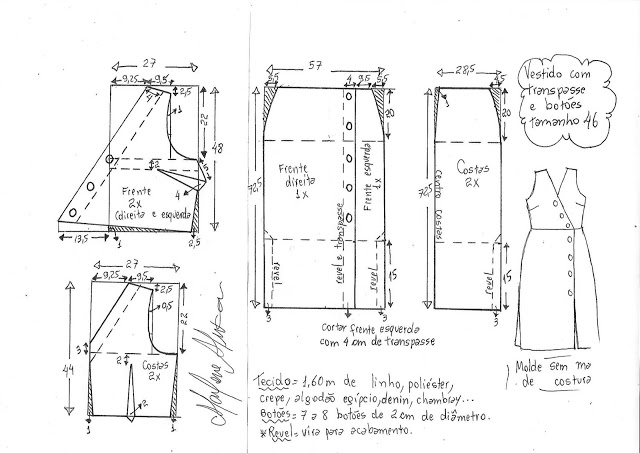 Vestido com
transpasse
e botões
tamanho 46
27
9,25
9,5
2,5
4
1
22
48
5
2
4
Frente
2x
(direita e esquerda
13,5
1
2,5
57
5,5
4
9,5
5,5
20
72,5
Frente
direita
1x
revel e transpasse
Frente esquerda
1x
revel
revel
15
3
3
cortar frente esquerda
com 4 cm de transpasse
28,5
4,5
1
20
Costas
2x
72,5
centro costas
revel
15
3
27
9,25
9,5
2,5
0,5
22
3
2
44
Costas
2x
2
1
1
Molde sem ma
de costura
Tecido = 1,60 m de linho, poliéster,
crepe, algodão egípcio, denin, chambray...
Botões = 7 a 8 botões de 2 cm de diâmetro.
*Revel = vira para acabamento.